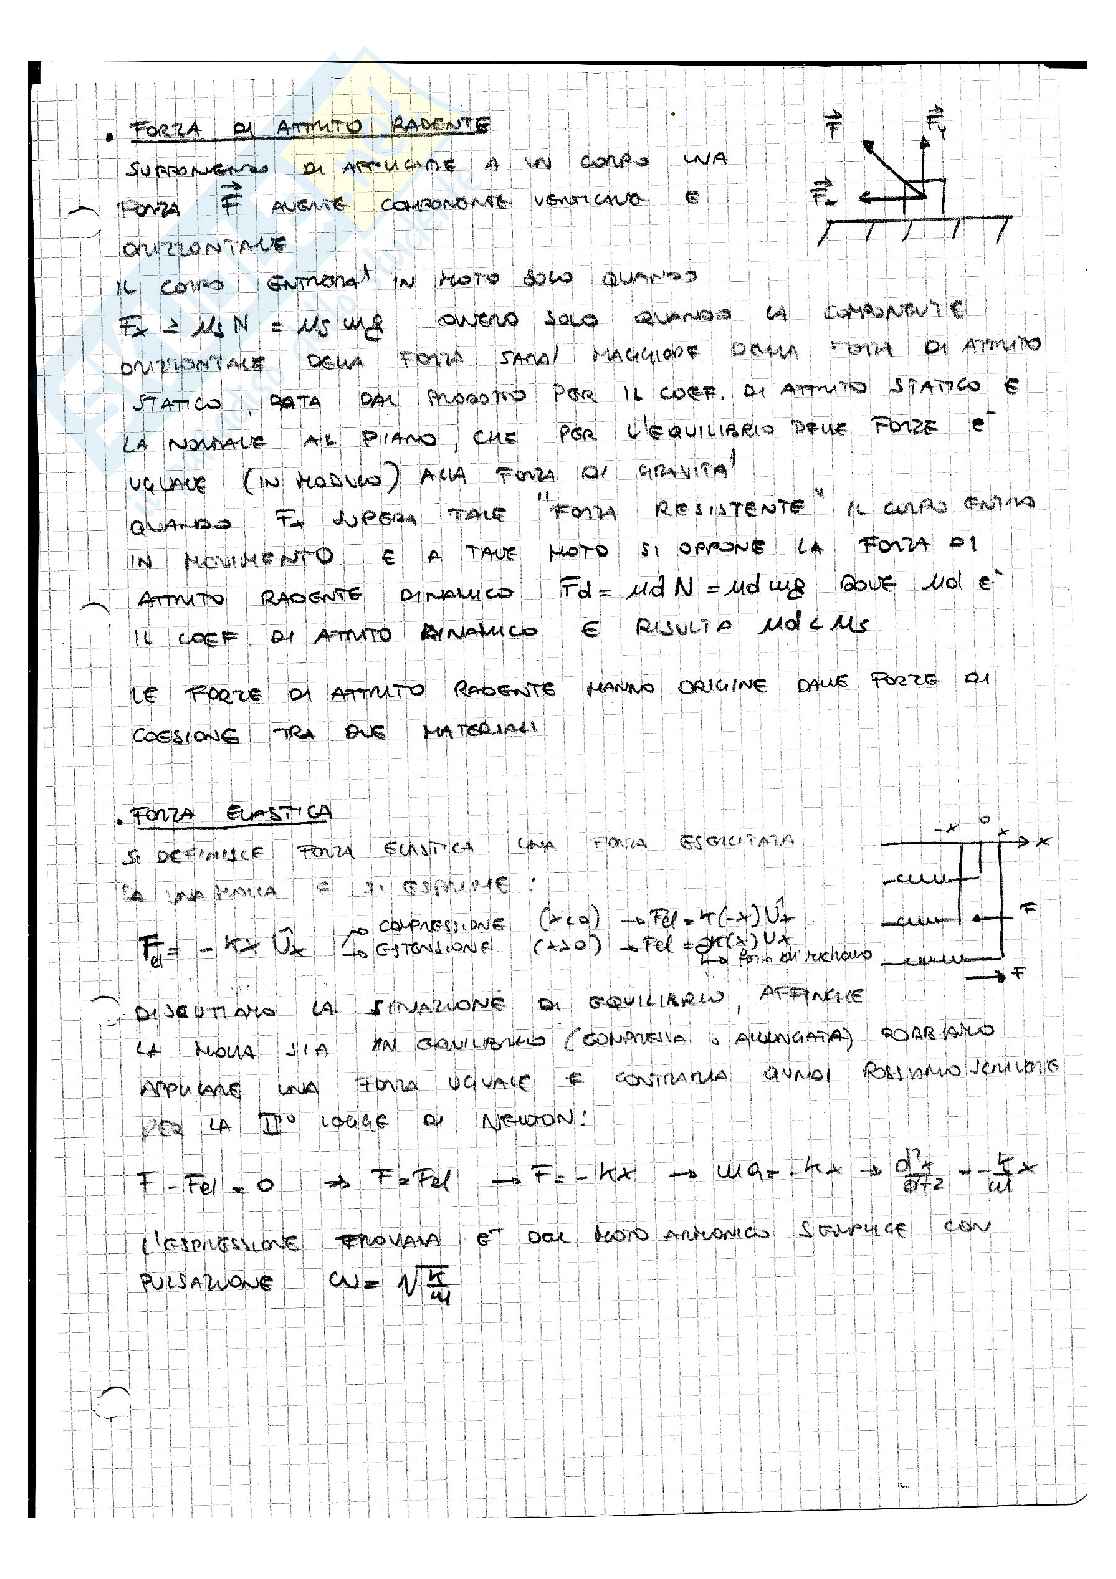 • FORZA DI ATTRITO RADENTE
SUPPONENDO DI APPLICARE A UN CORPO UNA
FORZA F AVENTE COMPONENTE VERTICALE E
ORIZZONTALE
IL CORPO ENTRERA' IN MOTO SOLO QUANDO
Fx ≥ μs N = μs mg OVVERO SOLO QUANDO LA COMPONENTE
ORIZZONTALE DELLA FORZA SARA' MAGGIORE DELLA FORZA DI ATTRITO
STATICO, DATA DAL PRODOTTO PER IL COEF. DI ATTRITO STATICO E
LA NORMALE AL PIANO, CHE PER L'EQUILIBRIO DELLE FORZE E'
UGUALE (IN MODULO) ALLA FORZA DI GRAVITA'
QUANDO Fx SUPERA TALE "FORZA RESISTENTE" IL CORPO ENTRA
IN MOVIMENTO E A TALE MOTO SI OPPONE LA FORZA DI
ATTRITO RADENTE DINAMICO Fd = μd N = μd mg DOVE μd E'
IL COEF. DI ATTRITO DINAMICO E RISULTA μd < μs
LE FORZE DI ATTRITO RADENTE HANNO ORIGINE DALLE FORZE DI
COESIONE TRA DUE MATERIALI
F Fy
Fx
• FORZA ELASTICA
SI DEFINISCE FORZA ELASTICA UNA FORZA ESERCITATA
DA UNA MOLLA E SI ESPRIME:
Fel = -Kx Ûx → COMPRESSIONE (x<0) → Fel = K(-x) Ûx
→ ESTENSIONE (x>0) → Fel = -K(x) Ux
→ forza di richiamo
-x 0 x x
F
F
DISCUTIAMO LA SITUAZIONE DI EQUILIBRIO, AFFINCHE
LA MOLLA SIA IN EQUILIBRIO (COMPRESSA o ALLUNGATA) DOBBIAMO
APPLICARE UNA FORZA UGUALE E CONTRARIA QUINDI POSSIAMO SCRIVERE
PER LA II° LEGGE DI NEWTON:
F - Fel = 0 → F = Fel → F = -Kx → ma = -Kx → d²x/dt² = -K/m x
L'ESPRESSIONE TROVATA E' DEL MOTO ARMONICO SEMPLICE CON
PULSAZIONE ω = √K/m